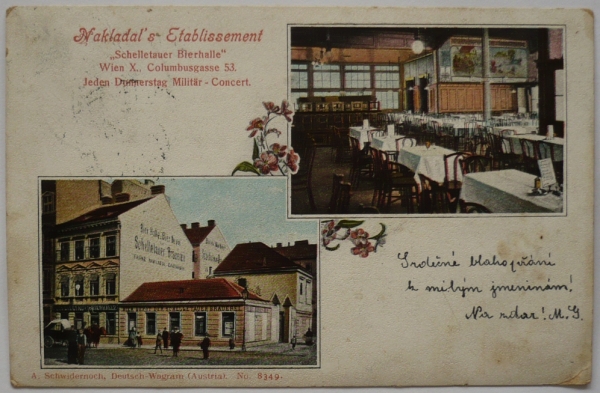 Nakladal's Etablissement
„Schelletauer Bierhalle"
Wien X., Columbusgasse 53.
Jeden Donnerstag Militär-Concert.
Schelletauer
Srdečné blahopřání
k milým jmeninám!
Na zdar! M.G.
A. Schwidernoch, Deutsch-Wagram (Austria). No. 8349.